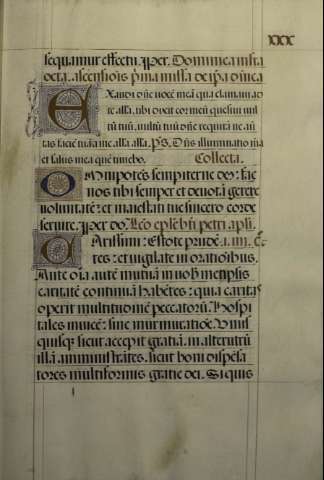 XXX
sequamur effectu. p̱er. Dominica infra
octa. ascensiōis p̄ma missa de ip̄a d̄nica
EXaudi dn̄e vocē meā qua clamavi ad
te al̄la. tibi dixit cor meū quesivi vul
tū tuū. vultū tuū dn̄e requirā ne av̄
tas faciē tuā a me al̄la al̄la. p̄s. Dn̄s illuminatio mea
et salus mea quē timebo. Collecta.
OMnipotēs sempiterne deꝰ: fac
nos tibi semper et devotā gerere
volūtatē: et maiestati tue sincero corde
servire. p̱er do. Leō ep̄le bt̄i petri apl̄i.
CArissimi: Estote prudē
tes: et vigilate in orationibus.
Ante oīa autē mutuā in vob̄ metip̄sis
caritatē continuā habētes: quia caritas
operit multitudinē peccatorū. Hospi
tales invicē: sine murmuratiōe. Unus
quisq̄ sicut accepit gratiā. in alterutrū
illā amministrātes. sicut boni dispēsa
tores multiformis gratie dei. Si quis